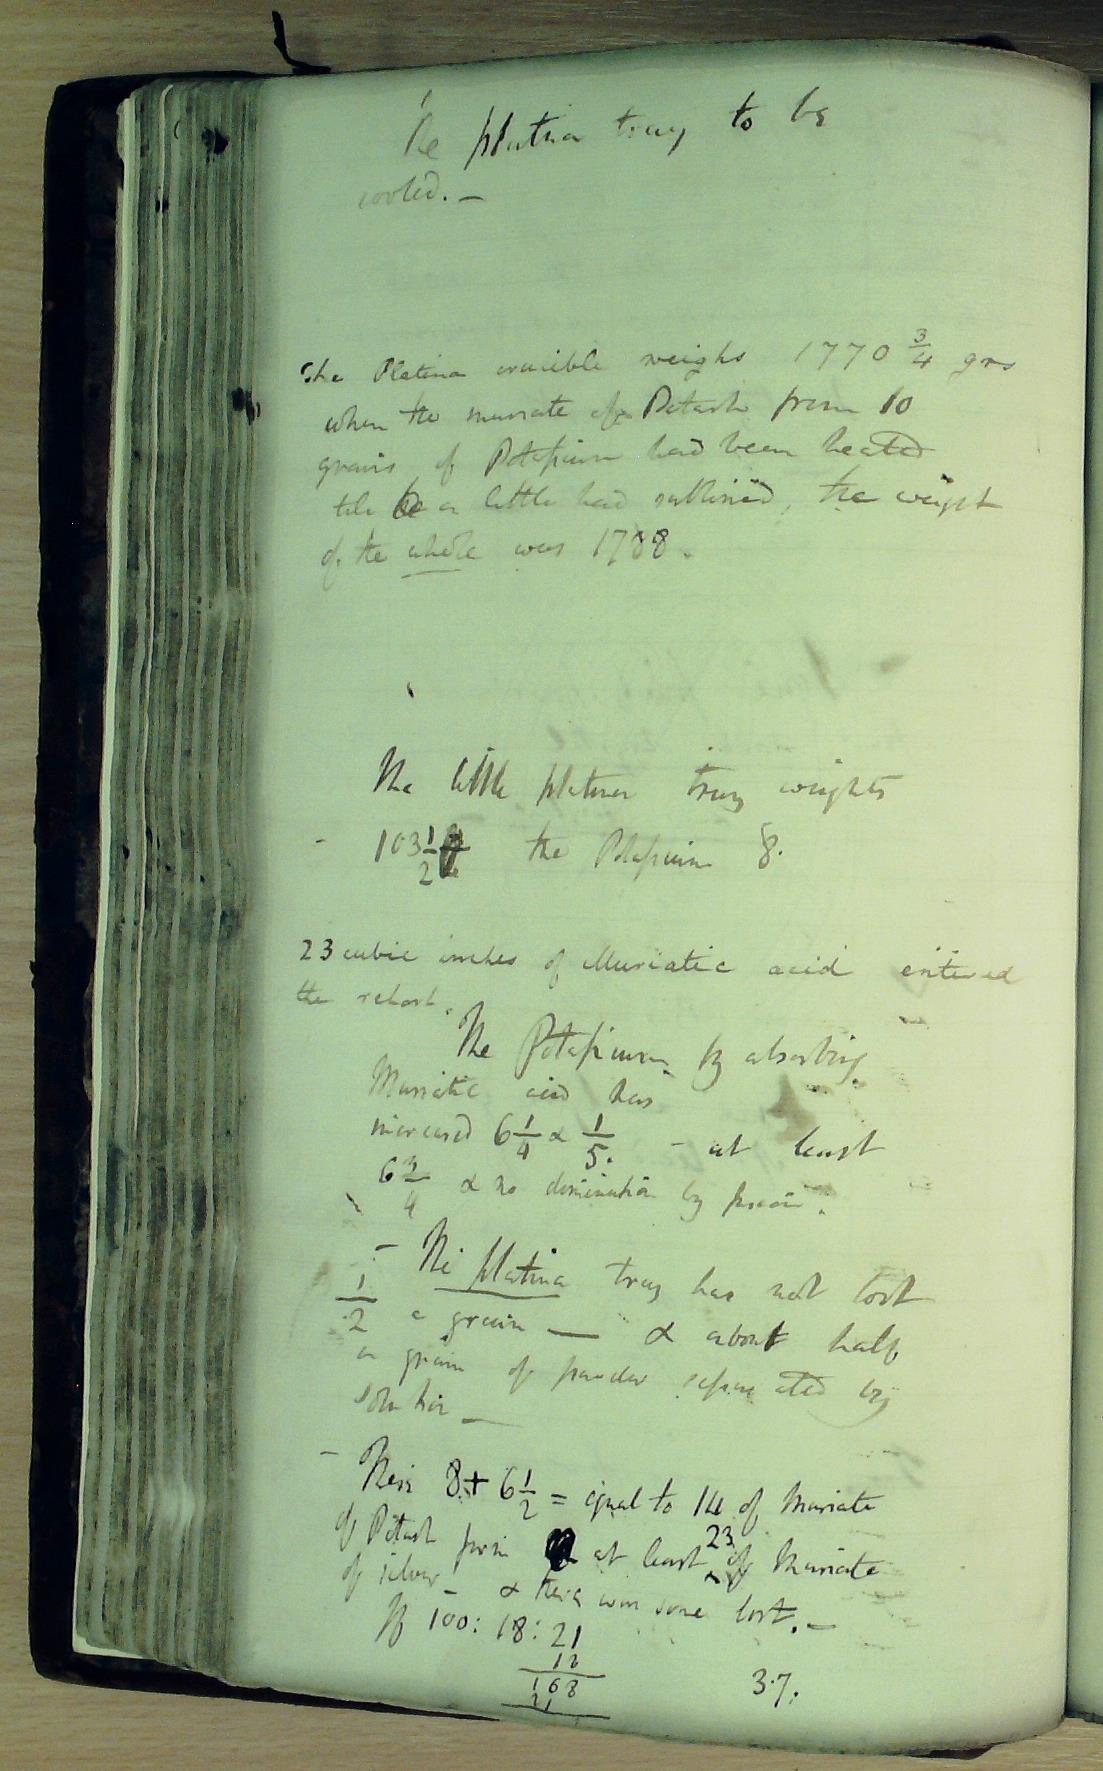 The platina tray to be
cooled. —
The Platina crucible weighs 1770 3/4 grs
when the muriate of Potash from 10
grains of Potassium had been heated
till a little had sublimed, the weight
of the whole was 1788.
The little platina tray weights
- 103 1/2 the Potassium 8.
23 cubic inches of Muriatic acid entered
the retort.
The Potassium by absorbing
Muriatic acid has
increased 6 1/4 & 1/5. - at least
6 3/4 & no diminution by
- The platina tray has not lost
1/2 a grain — & about half
a grain of powder separated by
solution —
- 8 + 6 1/2 = equal to 14 of Muriate
of Potash from at least 23 of Muriate
of silver - & there was some lost. —
If 100 : 18 : 21
18
168
21
3.7.